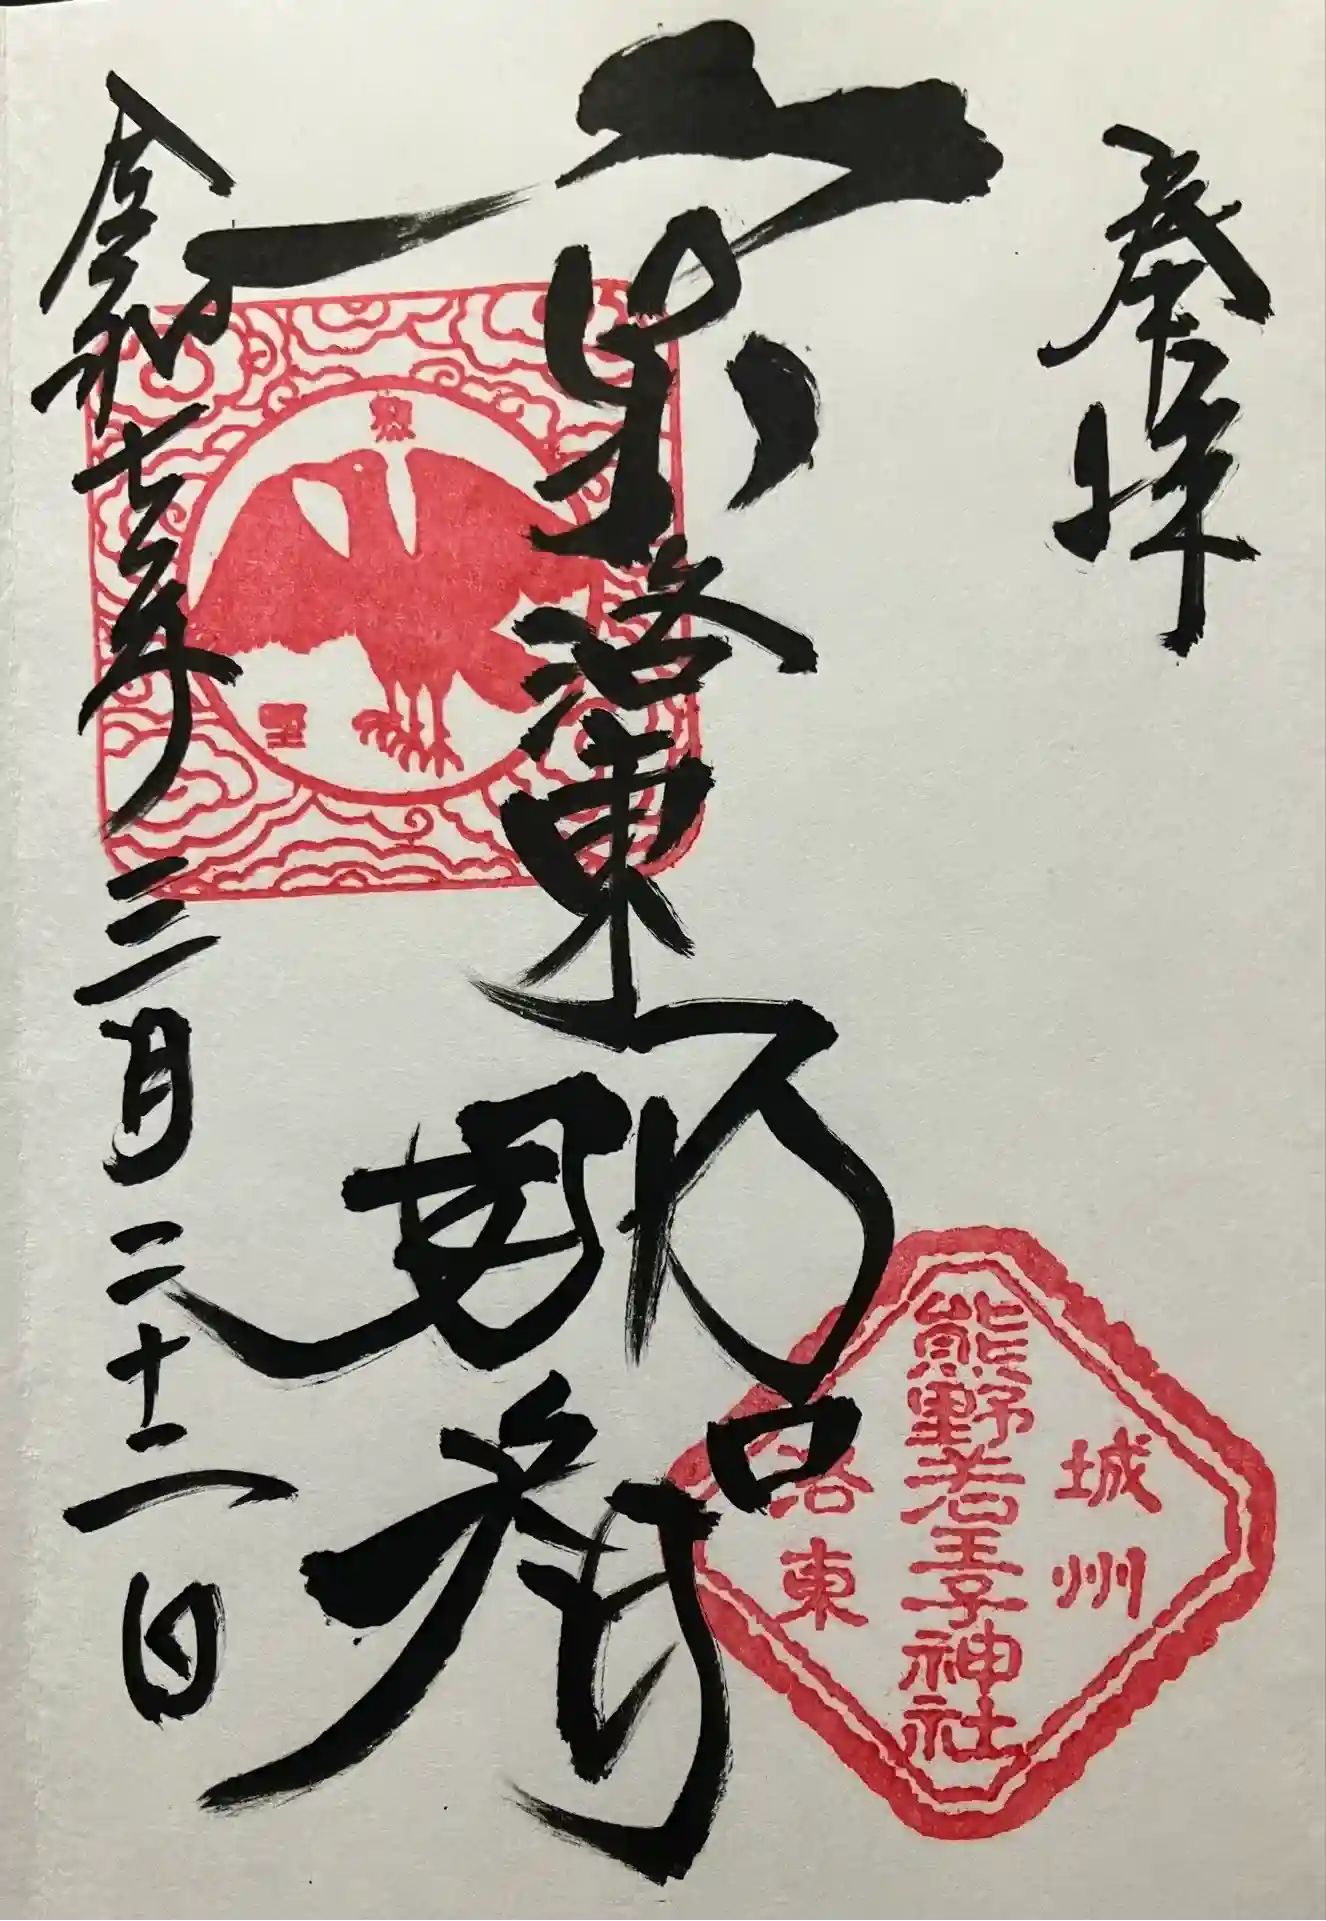 奉拝
京洛東那智
令和七年三月二十二日
城州
熊野若王子神社
洛東